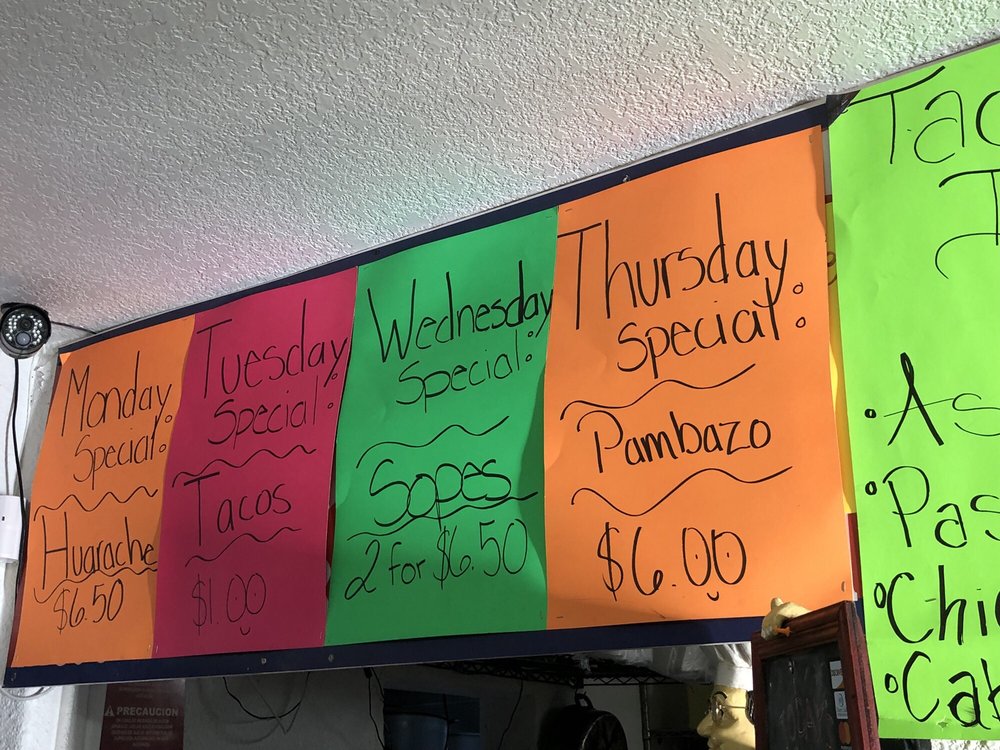 Monday
Special:
Huarache
$6.50
Tuesday
Special:
Tacos
$1.00
Wednesday
Special:
Sopes
2 for $6.50
Thursday
Special:
Pambazo
$6.00
Tac
T
• As
• Pas
• Chi
• Cab
PRECAUCION